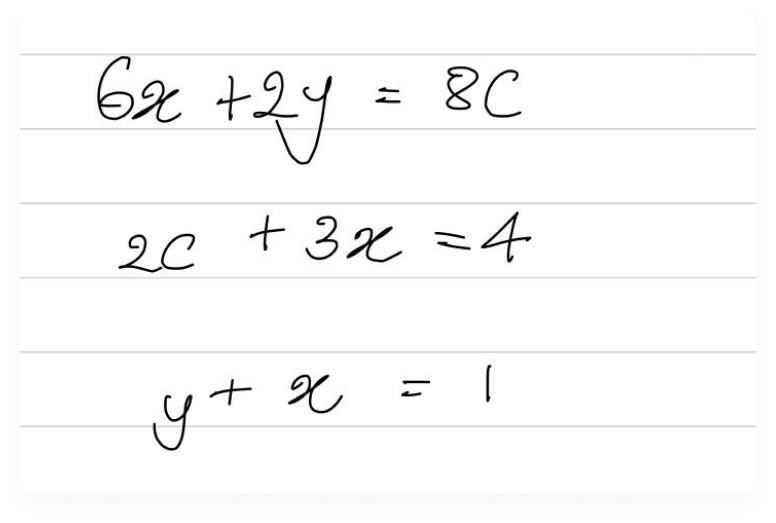 6x + 2y = 8C
2C + 3x = 4
y + x = 1